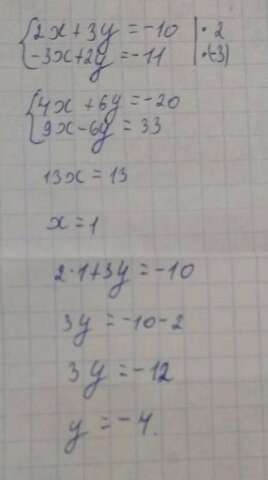 {2x+3y=-10 | · 2
{-3x+2y=-11 | ·(-3)
{4x+6y=-20
{9x-6y=33
13x=13
x=1
2·1+3y=-10
3y=-10-2
3y=-12
y=-4.